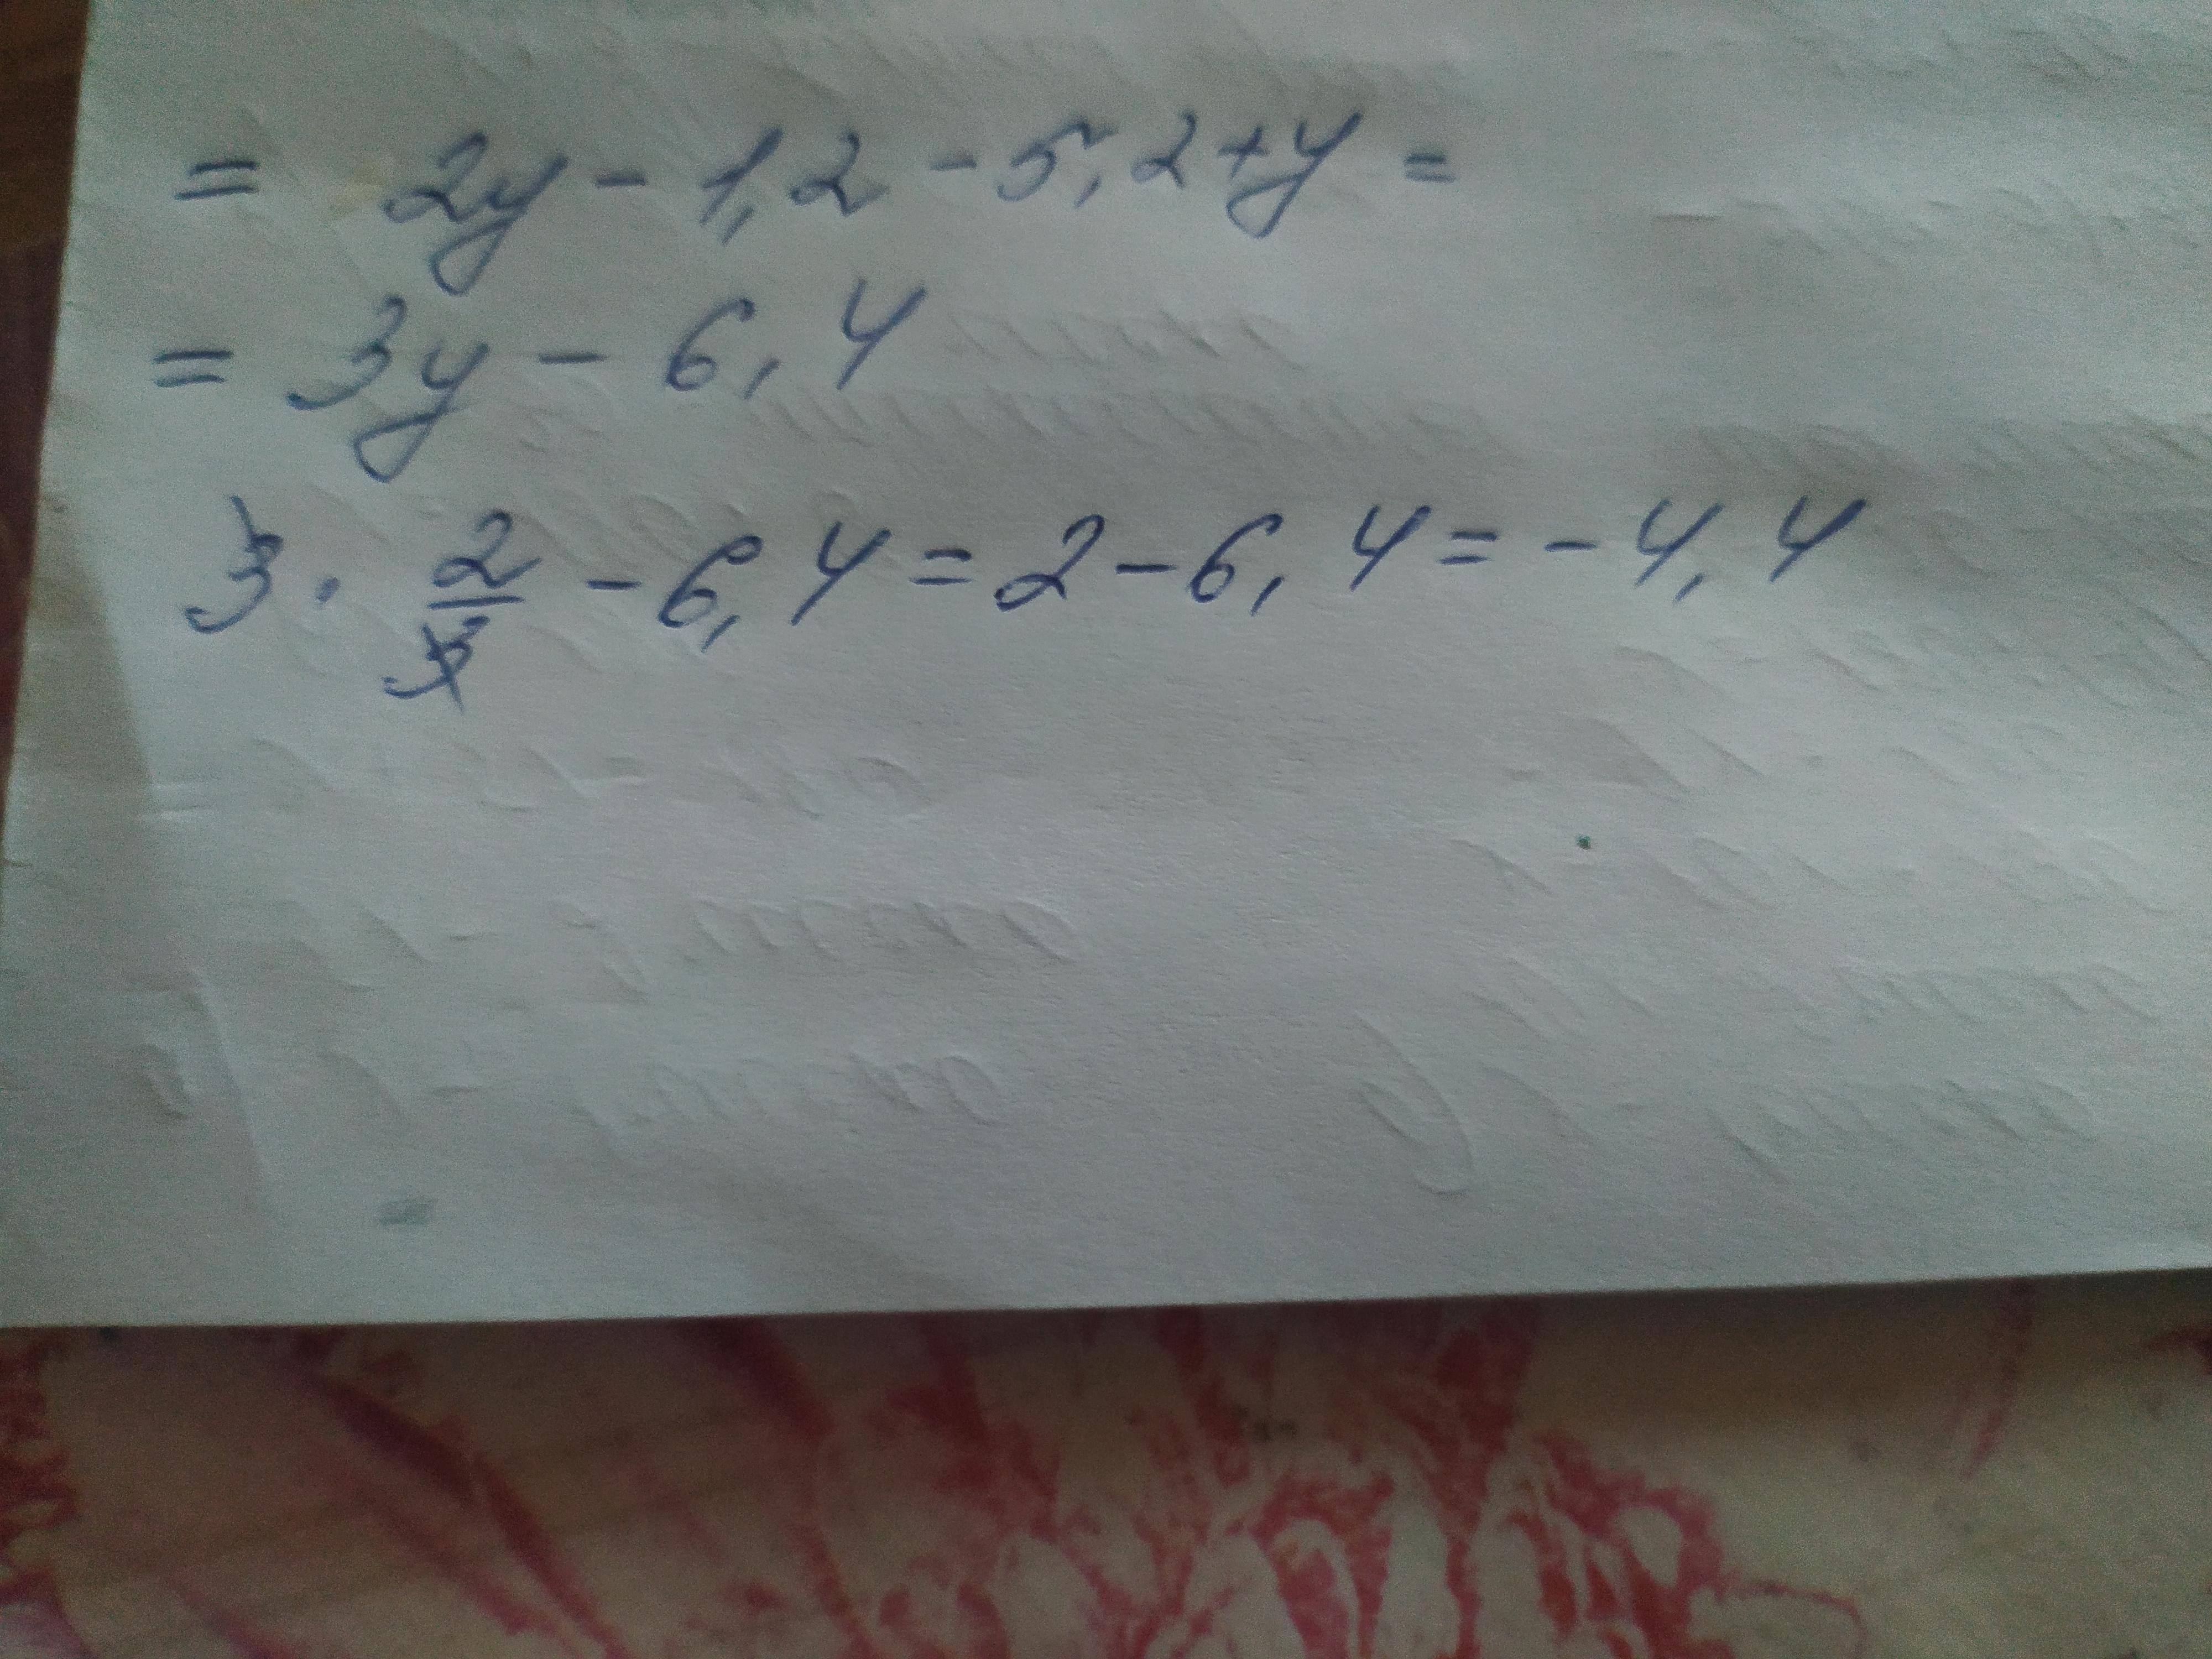 = 2y - 1,2 - 5,2 + y =
= 3y - 6,4
3 · 2/3 - 6,4 = 2 - 6,4 = - 4,4